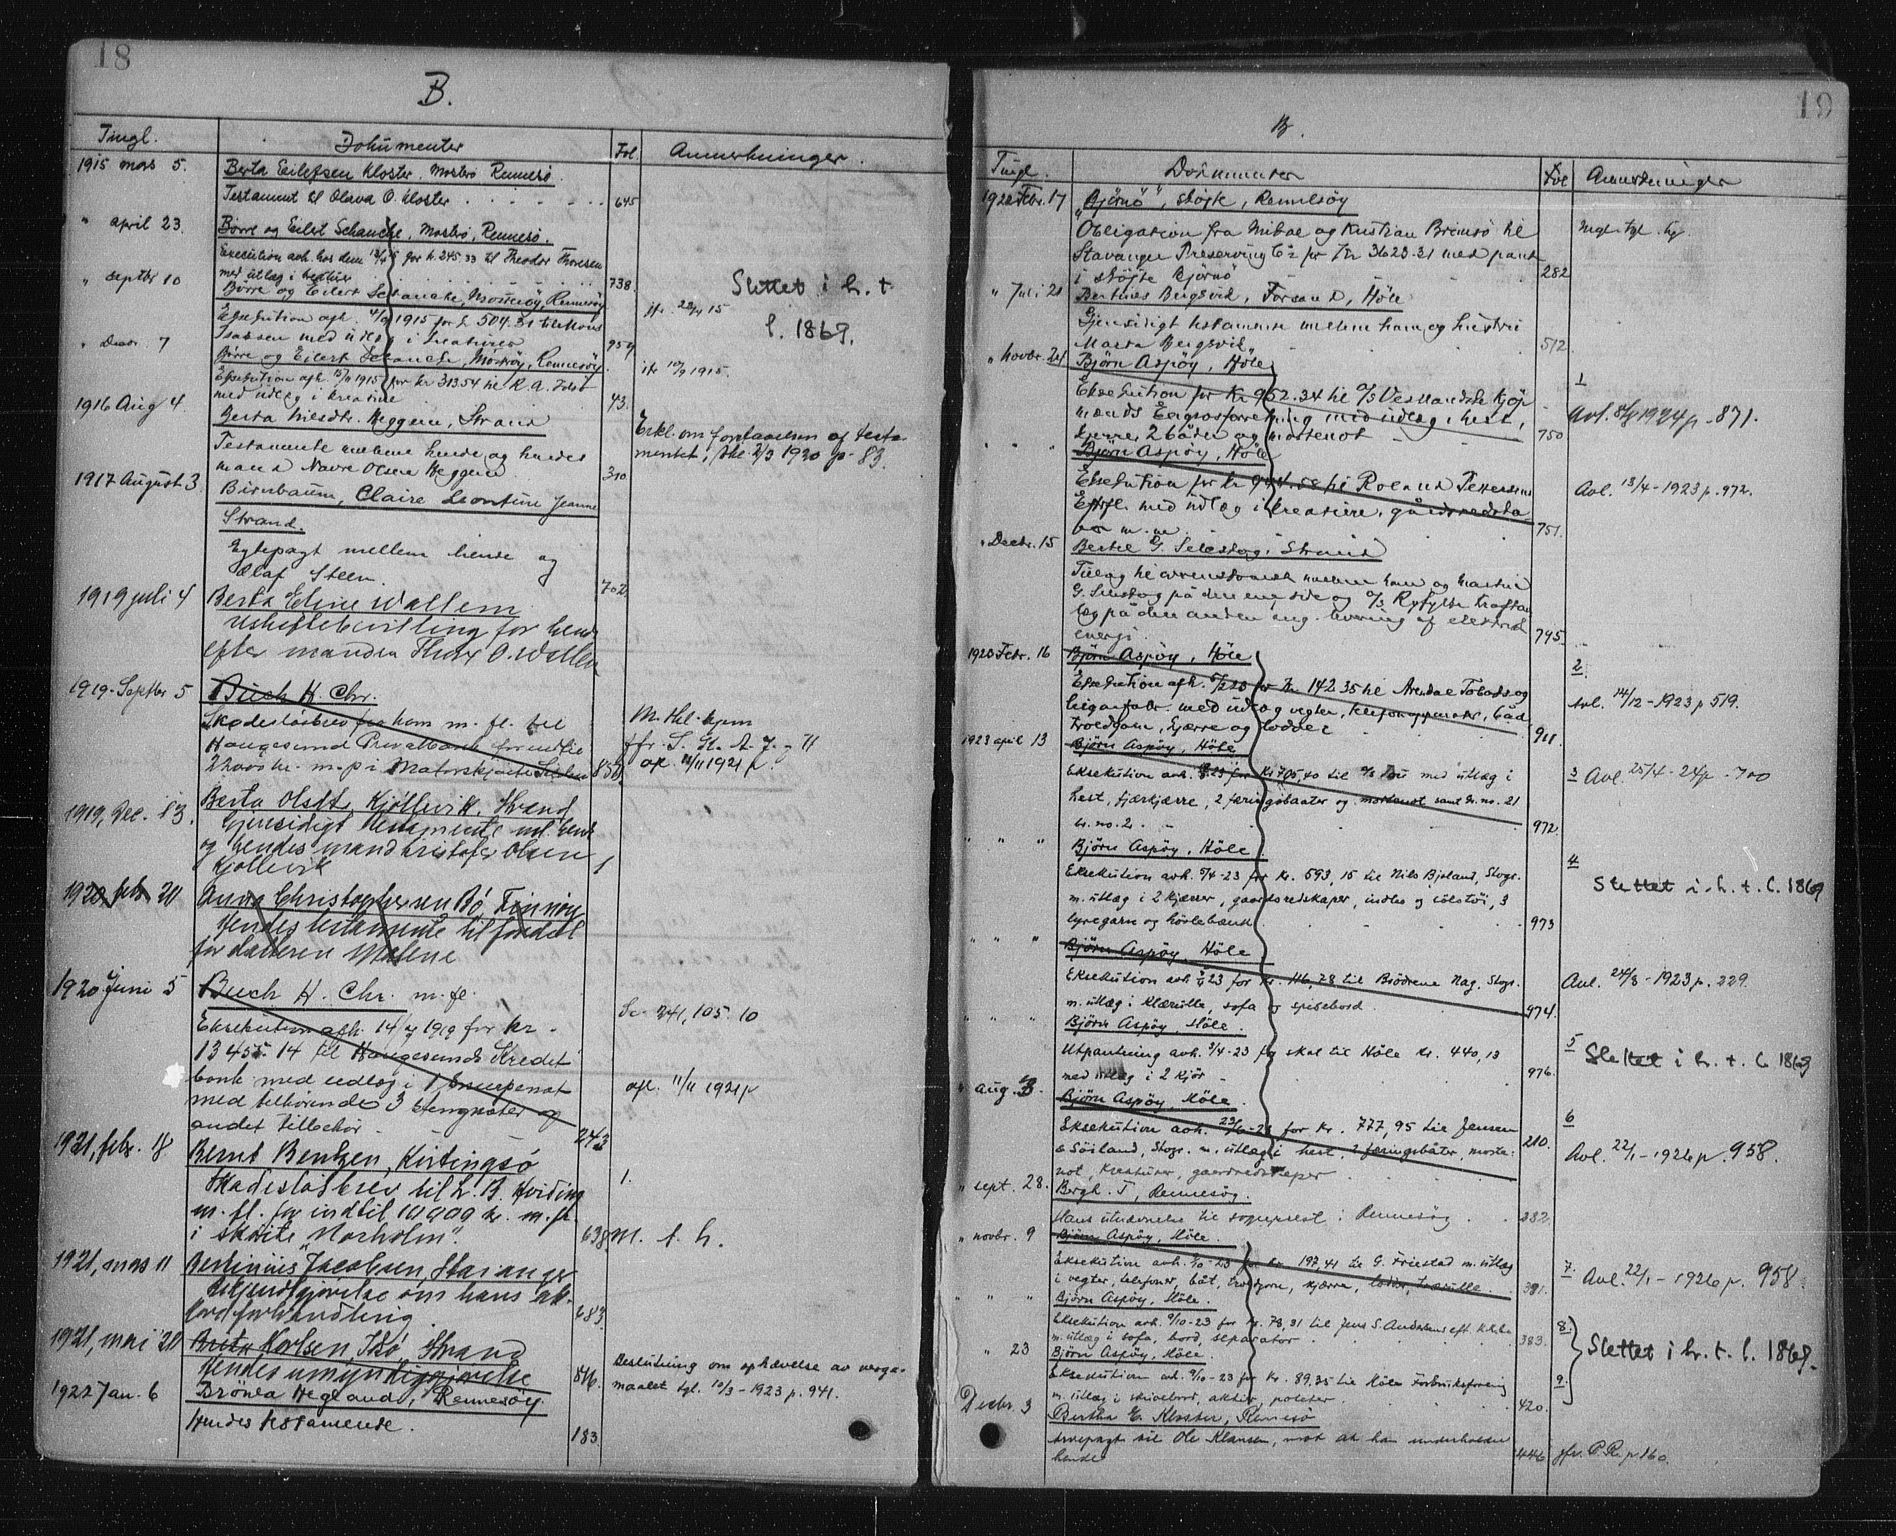 18
B.
Tingl. Dokumenter Fol Anmerkninger.
1915 mars 5. Berta Eilefsen Kloster, Mosterø Rennesø.
Testament til Olava O. Kloster 645
" april 23. Børre og Eilert Schancke, Mosterø, Rennesø.
Execution avh. hos dem for kr. 245.33 til Theodor Thoresen
med utlæg i 738.
" septbr 10 Børre og Eilert Schancke, Mosterøy, Rennesøy
Eksekution afh. 1915 for k 504.31 til Mons
Isaksen med udlæg i kreaturer 959
Slettet i h. t.
l. 1869.
" Decbr 7 Børre og Eilert Schancke, Mosterøy, Rennesøy.
Eksekution afh. 1915 for kr 313.54 til K. A.
med udlæg i kreatur 43.
1916 Aug 4. Berta Nilsdtr. Heggem, Strand
Testamente mellem hende og hendes
mand Navre Olsen Heggem 310
Erkl. om forstaaelsen af testa-
mentet, thl. 2/3 1920 p. 83.
1917 August 3 Birnbaum, Claire Leontine Jeanne
Strand.
Egtepagt mellem hende og
Olaf Steen. 702
1919 juli 4 Berta Eline Wallem
Uskiftebevilling for hende
efter manden Thor O. Wallem
1919 Septbr 5 Buch H. Chr.
Skadesløsbrev fra ham m. fl. til
Haugesund Privatbank for indtil
22000 kr. m. p. i Motorskøite 850
M. Hl. hjem
jfr. S. St. A. 7. - 71
af. 11/11 1921 p.
1919, Dec. 83. Berta Olsdt. Kjöllevik, Strand
Gjensidigt testamente ml. hende
og hendes mand Kristofer Olsen
Kjöllevik 1
1920 feb. 20 Anna Christophersen Bö, Finnöy
Hendes testamente til fordel
for datteren Malene
1920 Juni 5 Buch H. Chr. m. fl.
Eksekution afh. 14/ 1919 for kr.
13455.14 til Haugesunds Kredit
bank med udlæg i
med tilhörende 3 stengnöter og
andet tilbehör 243
Se 241, 105. 10
af. 11/11 1921 p
1921, febr. 18 Bernt Bentzen, Kvitingsö
Skadeslösbrev til L. B. Hviding
m. fl. for indtil 10000 kr. m. p.
i sköite "Norholm". 638 M. t. h.
1.
1921, mars 11 Bertinius Jacobsen, Stavanger
Bekjendtgjörelse om hans ak-
kordforhandling 683.
1921, mai 20 Berta Karlsen Idsö, Strand
Hendes umyndiggjörelse 846.
Beslutning om ophævelse av verge-
maalet tgl. 10/3 - 1923 p. 941.
1922 Jan. 6 Brönla Hegland, Rennesöy.
Hendes testamente. 183
19
B.
Tingl. Dokumenter Fol Anmerkninger
1922 Febr. 17 "Björnö", sköite, Rennesöy
Obligation fra Mikal og Kristian Brimsö til
Stavanger Preserving Co for Kr 3623.31 med pant
i sköite Björnö 282
" Juli 21 Bertines Bergsvik, Forsand, Höle
Gjensidigt testamente mellem ham og hustru
Marta Bergsvik. 512.
" Novbr. 24 Björn Aspöy, Höle
Eksekution for Kr 952.34 til A/S Vestlandske kjöp
mænds Engrosforretning med udlæg i hest,
kjerre, 2 båter og mortenot 750
1
Avl. 1924 p. 871.
" " Björn Aspöy, Höle
Eksekution for kr til Roland Pettersens
Eftrfl. med udlæg i kreaturer, gårdsredska
ber m. m. 751.
Avl. 13/4 - 1923 p. 972.
" Decbr. 15 Bertel G. Selestog, Strand
Tillæg til overenskomst mellem ham og Martin
G. Selestog på den ene side og A/S Ryfylke kraftan
læg på den anden ang. levering af elektrisk
energi. 795.
1923 Febr. 16 Björn Aspöy, Höle
Eksekution afh. for kr 142.35 til Arendal Tobaks og
Cigarfabr. med udlæg vegter, telefonapparater, båd
troldgarn, kjærre og lodder 911.
2
Avl. 14/12 - 1923 p 519.
1923 april 13 Björn Aspöy, Höle
Eksekution avh. 23 for kr 795,40 til med utlæg i
hest, fjærkjærre, 2 færingsbaater og mortenot samt gr. no. 21
br. no. 2. 972.
3 Avl. 25/4 - 24 p - 700
" " " Björn Aspöy, Höle.
Eksekution avh. 9/4 - 23 for kr. 593,15 til Nils Bjeland, Stvgr.
m. utlæg i 2 kjærrer, gaardsredskaper, indbo og lösöri, 3
lyregarn og hövlebænk 973
4
Slettet i h. t. l. 1869
" " " Björn Aspöy Höle
Eksekution avh. 23 for kr. 116,78 til Brödrene Nag, Stvgr.
m. utlæg i klærulle, sofa og spisebord. 974.
Avl. 24/8 - 1923 p. 229.
" " " Björn Aspöy, Höle.
Utpantning avh. 3/4 - 23 for skat til Höle kr. 440,13
med utlæg i 2 kjör 976.
5 Slettet i h. t. l. 1869
" Aug. 3. Björn Aspöy, Höle.
Eksekution avh. 23/6 - 23 for kr. 777,95 til Jensen
& Söiland, Stvgr. m. utlæg i hest, 2 færingsbåter, morte-
not, kreaturer, gaardredskaper 210.
6
Avl. 22/1 - 1926 p. 958.
" sept. 28. Bergh. T, Rennesöy.
Hans utnævnelse til sogneprest i Rennesöy 282.
" novbr. 9 Björn Aspöy, Höle.
Eksekution avh. 1/10 - 23 for kr. 197,41 til G. Friestad m. utlæg
i vegter, telefoner, båt, troldgarn, kjærre, lodder, tærulle. 381.
7. Avl. 22/1 - 1926 p. 958.
" " Björn Aspöy, Höle.
Eksekution avh. 9/10 - 23 for kr. 78,31 til Jens S. Andersens eft.
m. utlæg i sofa, bord, separator 383.
8.
Slettet i h. t. l. 1869.
" 23 Björn Aspöy, Höle.
Eksekution avh. 9/10 - 23 for kr. 89.35 til Höle Forbruksforening
m. utlæg i skrivebord, aktier, poteter 420.
9.
Decbr. 3 Bertha E. Kloster, Rennesö
Arvepagt til Ole Klausen, mot at han underholder
hende 446 jfr. P. R. p 160.